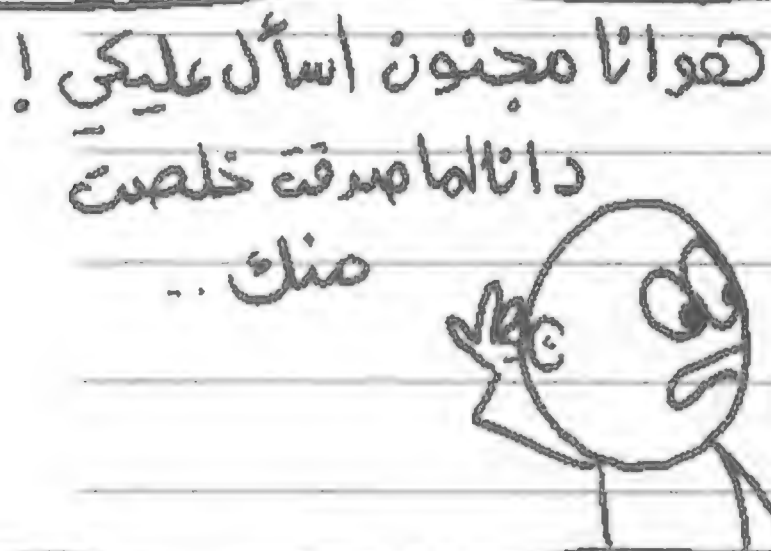 هو انا مجنون اسأل عليكي !
دانا لما صدقت خلصت
منك ..